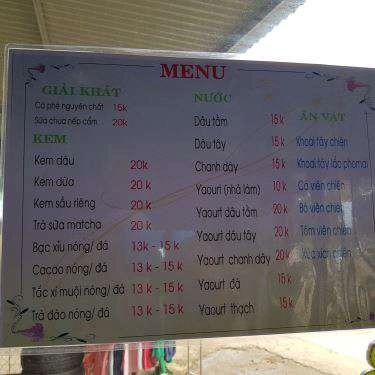 MENU
GIẢI KHÁT
Cà phê nguyên chất 15k
Sữa chua nếp cẩm 20k
KEM
Kem dâu 20k
Kem dừa 20 k
Kem sầu riêng 20 k
Trà sữa matcha 20 k
Bạc xỉu nóng/ đá 13k - 15 k
Cacao nóng/ đá 13 k - 15 k
Tắc xí muội nóng/ đá 13 k - 15 k
Trà đào nóng/ đá 13 k - 15 k
NƯỚC
Dâu tằm 15 k
Dâu tây 15 k
Chanh dây 15 k
Yaourt (nhà làm) 10 k
Yaourt dâu tằm 20 k
Yaourt dâu tây 20 k
Yaourt chanh dây 20 k
Yaourt đá 15 k
Yaourt thạch 15 k
ĂN VẶT
Khoai tây chiên
Khoai tây lắc phomai
Cá viên chiên
Bò viên chiên
Tôm viên chiên
viên chiên